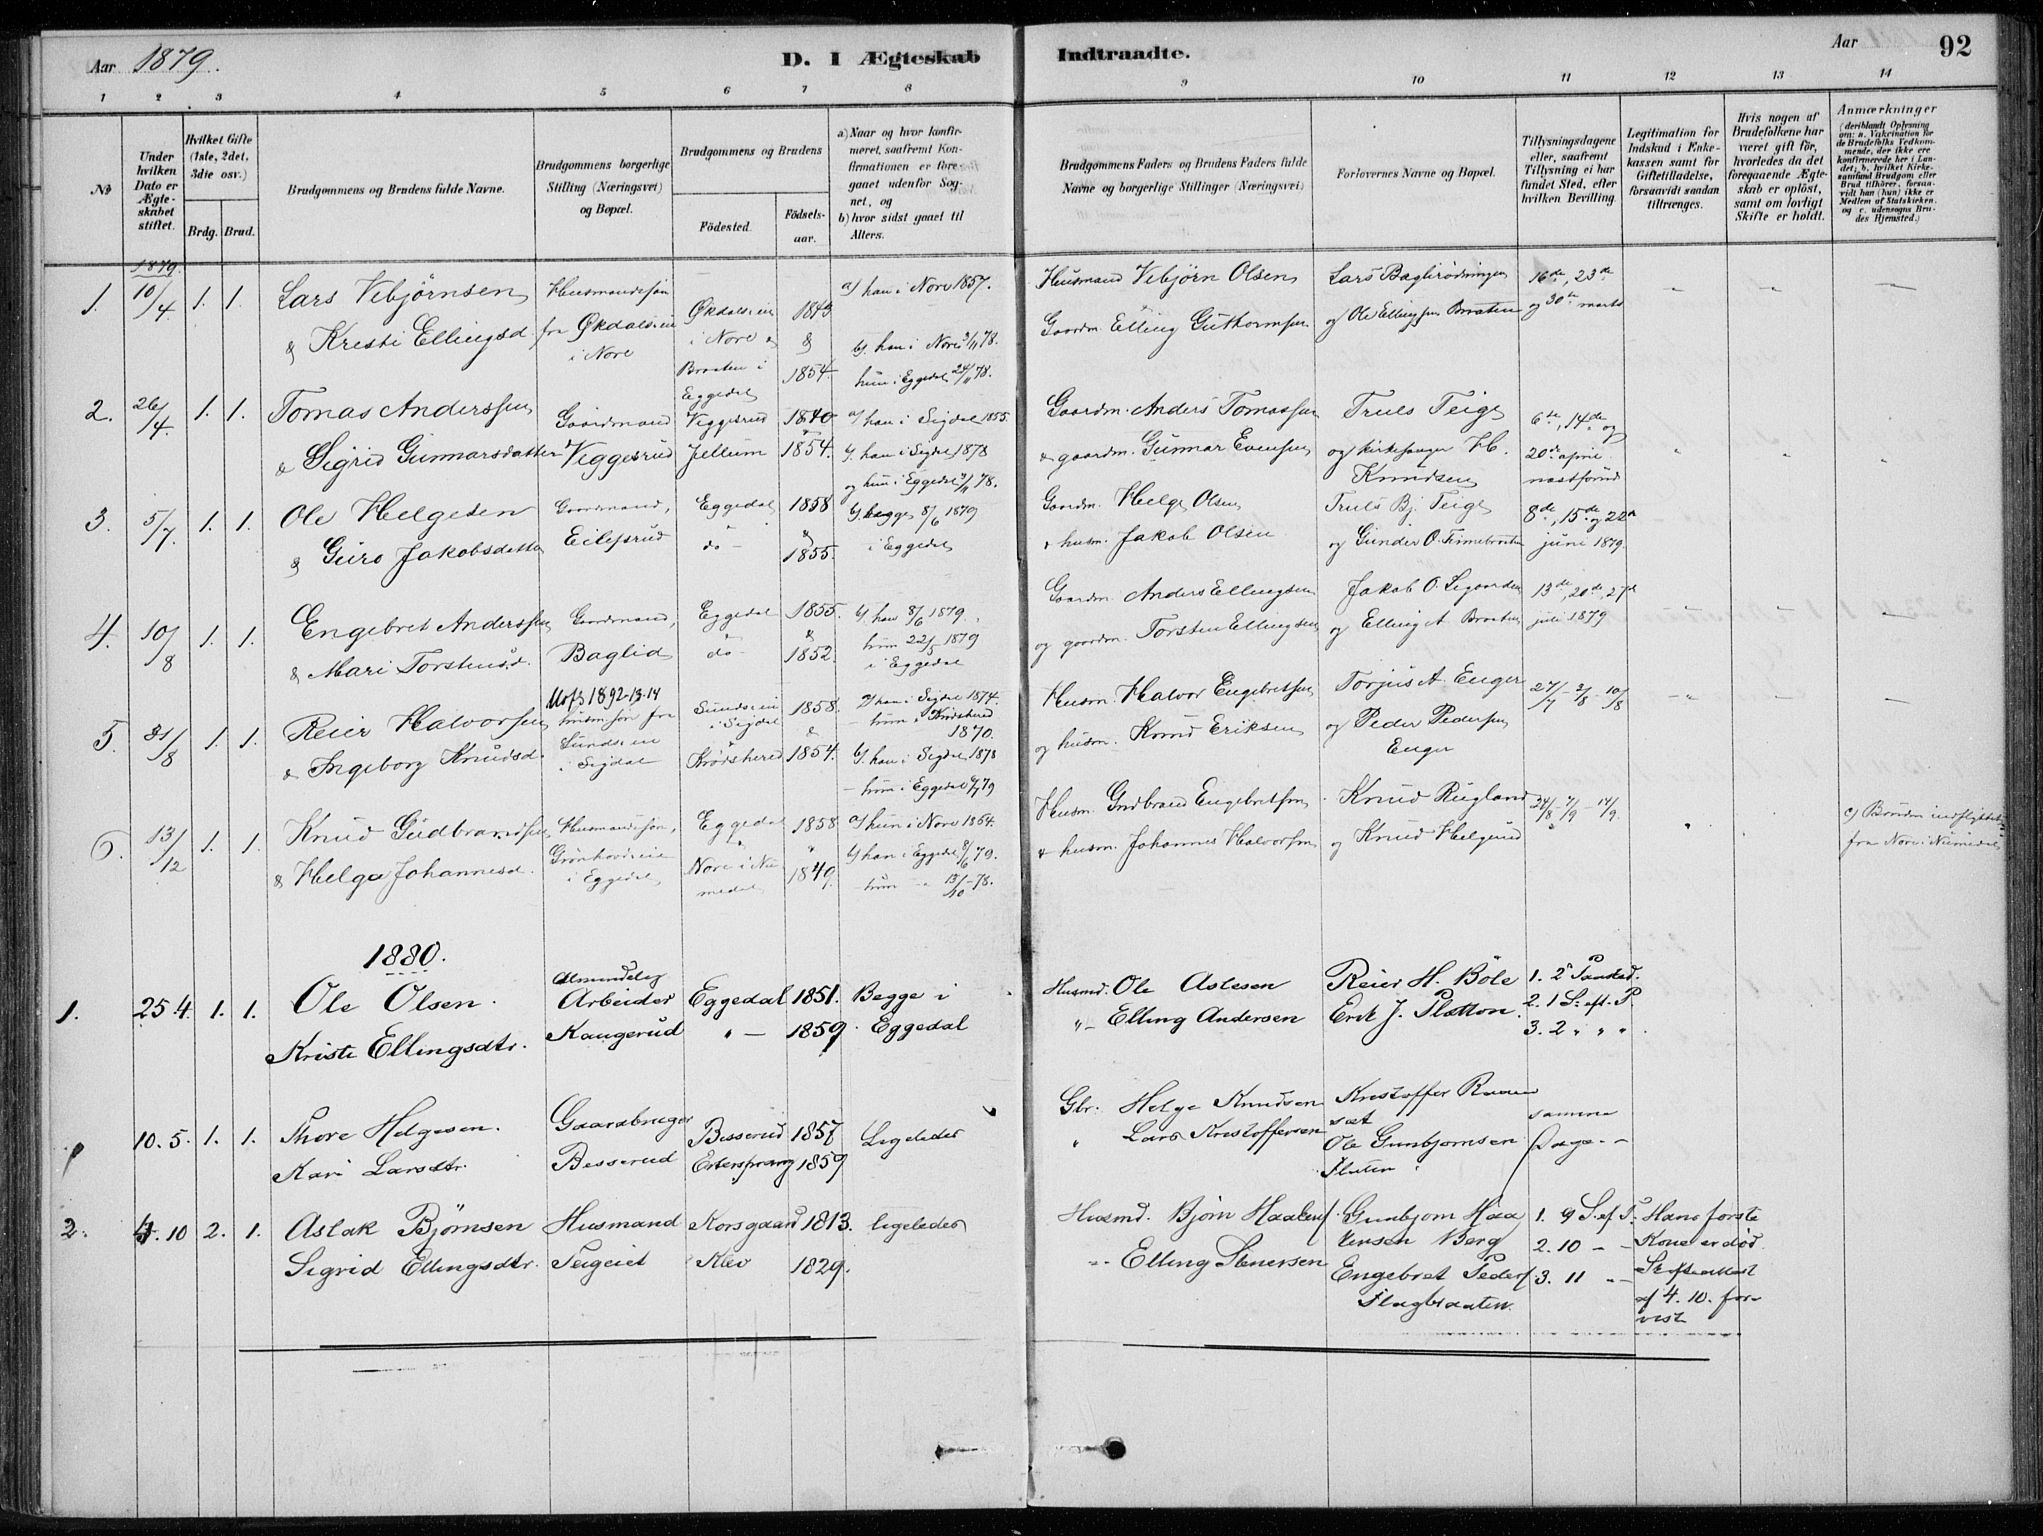 Aar 1879.
D. I Ægteskab
Indtraadte.
Aar
92
1 2 3 4 5 6 7 8 9 10 11 12 13 14
No
Under hvilken Dato er Ægteskabet stiftet.
Hvilket Gifte (1ste, 2det, 3die osv.)
Brdg. Brud.
Brudgommens og Brudens fulde Navne.
Brudgommens borgerlige Stilling (Næringsvei) og Bopæl.
Brudgommens og Brudens
Födested.
Födselsaar.
a) Naar og hvor konfirmeret, saafremt Konfirmationen er foregaaet udenfor Sognet, og
b) hvor sidst gaaet til Alters.
Brudgommens Faders og Brudens Faders fulde Navne og borgerlige Stillinger (Næringsvei)
Forlovernes Navne og Bopæl.
Tillysningsdagene eller, saafremt Tillysning ei har fundet Sted, efter hvilken Bevilling.
Legitimation for Indskud i Enkekassen samt for Giftetilladelse, forsaavidt saadan tiltrænges.
Hvis nogen af Brudefolkene har været gift för, hvorledes da det foregaaende Ægteskab er oplöst, samt om lovligt Skifte er holdt.
Anmærkninger
1879.
1. 10/4 1. 1. Lars Vebjørnsen & Kresti Ellingsd
Husmandssøn fra Økdalseie i Nore
Økdalseie i Nore & Braaten i Eggedal
1843 & 1854.
a) han i Nore 1857.
b) han i Nore 78.
hun i Eggedal 24/11 78.
Husmand Vebjörn Olsen
Gaardm. Elling Guthormsen
Lars og Ole Ellingsen Braaten
16de, 23de og 30te marts
2. 26/4. 1. 1. Tomas Anderssen & Sigrid Gunnarsdatter
Gaardmand Viggesrud
Viggesrud Jellum
1840 1854.
a) han i Sigdal 1855.
b. han i Sigdal 1878
og hun i Eggedal 78.
Gaardm. Anders Tomassen
& gaardm. Gunnar Evensen
Truls Teige og kirkesanger H. Knudsen
6te, 14de og 20de april
3. 5/7. 1. 1. Ole Helgesen & Guro Jakobsdatter
Gaardmand, Eilefsrud
Eggedal do -
1858 & 1855.
b) begge 8/6 1879 i Eggedal
Gaardm. Helge Olsen
& husm. Jakob Olsen
Truls Bj. Teige og Gunder O.
8de, 15de og 22de juni 1879.
4. 10/8 1. 1. Engebret Anderssen & Mari Torstensd.
Gaardmand, Baglid
Eggedal do
1855. & 1852.
b. han 8/6 1879.
hun 22/5 1879 i Eggedal
Gaardm. Anders Ellingsen
og gaardm. Torsten Ellingsen
Jakob O. og Elling A. Braaten
13de, 20de, 27de juli 1879
5. 31/8 1. 1. Reier Halvorsen & Ingeborg Knudsd.
1892-13-14
husm.søn fra Sundseie i Sigdal
Sundseie i Sigdal Krödsherred
1858. & 1854.
a) han i Sigdal 1874.
- hun i Krödsherred 1870.
b. han i Sigdal 1878
- hun i Eggedal 79
Husm. Halvor Engebretsen
og husm. Knud Eriksen
Torjus A. Enger og Peder Pedersen Enger
27/7 - 3/8 - 10/8
6. 13/12 1. 1. Knud Gudbrandsen & Helga Johannesd.
Husmandssøn, Grönhovdeie i Eggedal
Eggedal & Nore i Numedal
1858 1849.
a) hun i Nore 1864.
b) han i Eggedal 8/6 79.
- hun - 13/10 - 78.
Husm. Gudbrand Engebretsen
& husm. Johannes Halvorsen
Knud Rugland og Knud Helgerud
24/8 - 7/9 - 14/9.
c) Bruden indflyttet fra Nore i Numedal
1880.
1. 25 4. 1. 1. Ole Olsen. Kristi Ellingsdtr.
Almindelig Arbeider Kangerud
Eggedal " -
1851. 1859.
Begge i Eggedal
Husmd. Ole Aslesen
" - Elling Andersen
Reier H. Böle
Erik J. Slotton.
1. 2 Paaskd.
2. 1 S. eft. P.
3. 2 " " "
10. 5. 1. 1. Thore Helgesen. Kari Larsdtr.
Gaardbruger Besserud
Besserud Eitersprang
1857 1859
Ligeledes
Gbr. Helge Knudsen
" Lars Kristoffersen
Kristoffer sæt
Ole Gunbjørnsen
samme Dage - -
2. 4. 10 2. 1. Aslak Björnsen Sigrid Ellingsdtr.
Husmand Teigeiet
Korsgaard Klev
1813. 1829.
ligeledes
Husmd. Björn
" - Elling Stenersen
Gunbjørn Haavensen Berg
Engebret Peders. Flagbraaten.
1. 9 S. ef. T.
2. 10 - -
3. 11 - -
Hans første Kone er død. Skifteattest af 4. 10. forevist